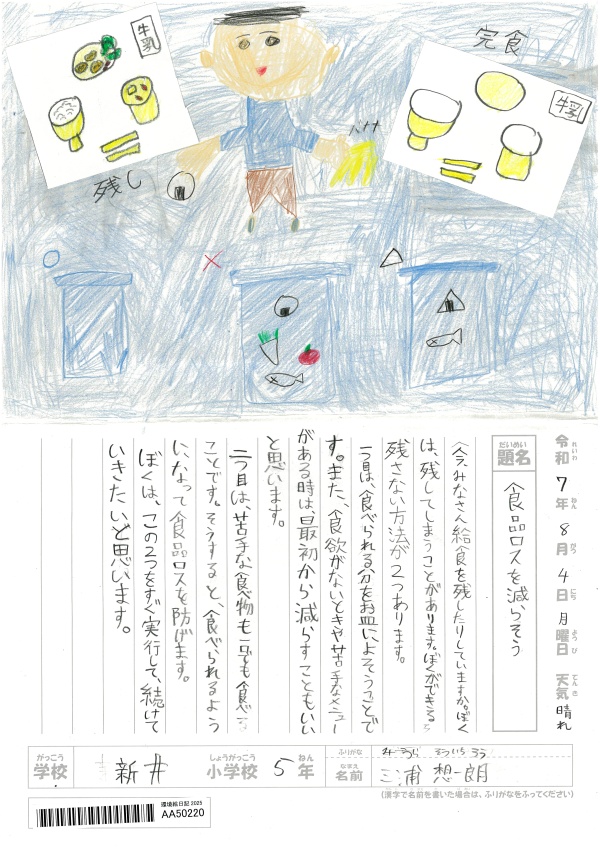 牛乳
完食
牛乳
残し
バナナ
令和7年8月4日月曜日 天気 晴れ
れいわ ねん がつ にち ようび てんき
だいめい
題名
食品ロスを減らそう
今、みなさん給食を残したりしていますか。ぼく
は、残してしまうことがあります。ぼくができる
残さない方法が2つあります。
一つ目は、食べられる分をお皿によそうことで
す。また、食欲がないときや苦手なメニュー
がある時は、最初から減らすこともいい
と思います。
二つ目は、苦手な食べ物も一口でも食べる
ことです。そうすると、食べられるよう
になって食品ロスを防げます。
ぼくは、この2つをすぐ実行して、続けて
いきたいと思います。
がっこう
学校
新井
しょうがっこう
小学校
5年
ねん
ふりがな
みうら そういちろう
なまえ
名前
三浦 想一朗
(漢字で名前を書いた場合は、ふりがなをふってください)
環境絵日記 2025
AA50220